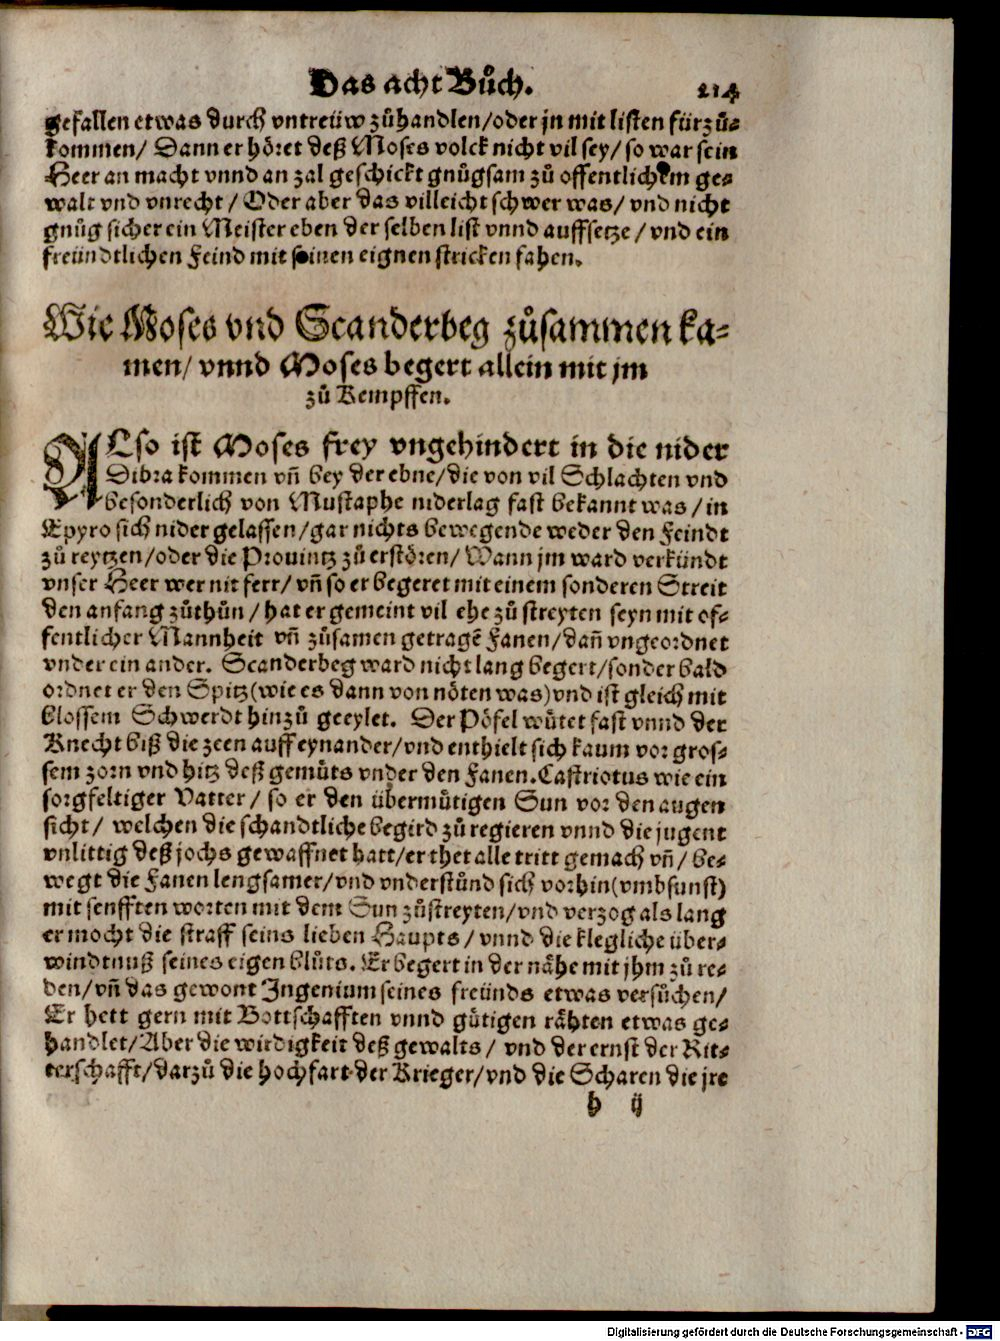 Das acht Bůch. 214
gefallen etwas durch vntreüw zůhandlen/oder jn mit listen fürzů-
kommen/ Dann er höret deß Moses volck nicht vil sey/ so war sein
Heer an macht vnnd an zal geschickt gnůgsam zů offentlichem ge-
walt vnd vnrecht/ Oder aber das villeicht schwer was/ vnd nicht
gnůg sicher ein Meister eben der selben list vnnd auffsetze/ vnd ein
freündtlichen Feind mit seinen eignen stricken fahen.
Wie Moses vnd Scanderbeg zůsammen ka-
men/ vnnd Moses begert allein mit jm
zů Kempffen.
ALso ist Moses frey vngehindert in die nider
Dibra kommen vñ bey der ebne/die von vil Schlachten vnd
besonderlich von Mustaphe niderlag fast bekannt was/in
Epyro sich nider gelassen/gar nichts bewegende weder den Feindt
zů reytzen/oder die Prouintz zů erstören/ Wann jm ward verkündt
vnser Heer wer nit ferr/ vñ so er begeret mit einem sonderen Streit
den anfang zůthůn/ hat er gemeint vil ehe zů streyten seyn mit of-
fentlicher Mannheit vñ zůsamen getragẽ Fanen/dañ vngeordnet
vnder ein ander. Scanderbeg ward nicht lang begert/sonder bald
ordnet er den Spitz(wie es dann von nöten was)vnd ist gleich mit
blossem Schwerdt hinzů geeylet. Der Pöfel wütet fast vnnd der
Knecht biß die zeen auff eynander/vnd enthielt sich kaum vor gros-
sem zorn vnd hitz deß gemůts vnder den Fanen. Castriotus wie ein
sorgfeltiger Vatter/ so er den übermůtigen Sun vor den augen
sicht/ welchen die schandtliche begird zů regieren vnnd die jugent
vnlittig deß jochs gewaffnet hatt/er thet alle tritt gemach vñ/ be-
wegt die Fanen lengsamer/vnd vnderstůnd sich vorhin(vmbsunst)
mit senfften worten mit dem Sun zůstreyten/vnd verzog als lang
er mocht die straff seins lieben Haupts/ vnnd die klegliche über-
windtnuß seines eigen blůts. Er begert in der nåhe mit jhm zů re-
den/vñ das gewont Ingenium seines freünds etwas versůchen/
Er hett gern mit Bottschafften vnnd gůtigen råhten etwas ge-
handlet/Aber die wirdigkeit deß gewalts/ vnd der ernst der Rit-
terschafft/darzů die hochfart der Krieger/vnd die Scharen die jre
h ij
Digitalisierung gefördert durch die Deutsche Forschungsgemeinschaft - DFG